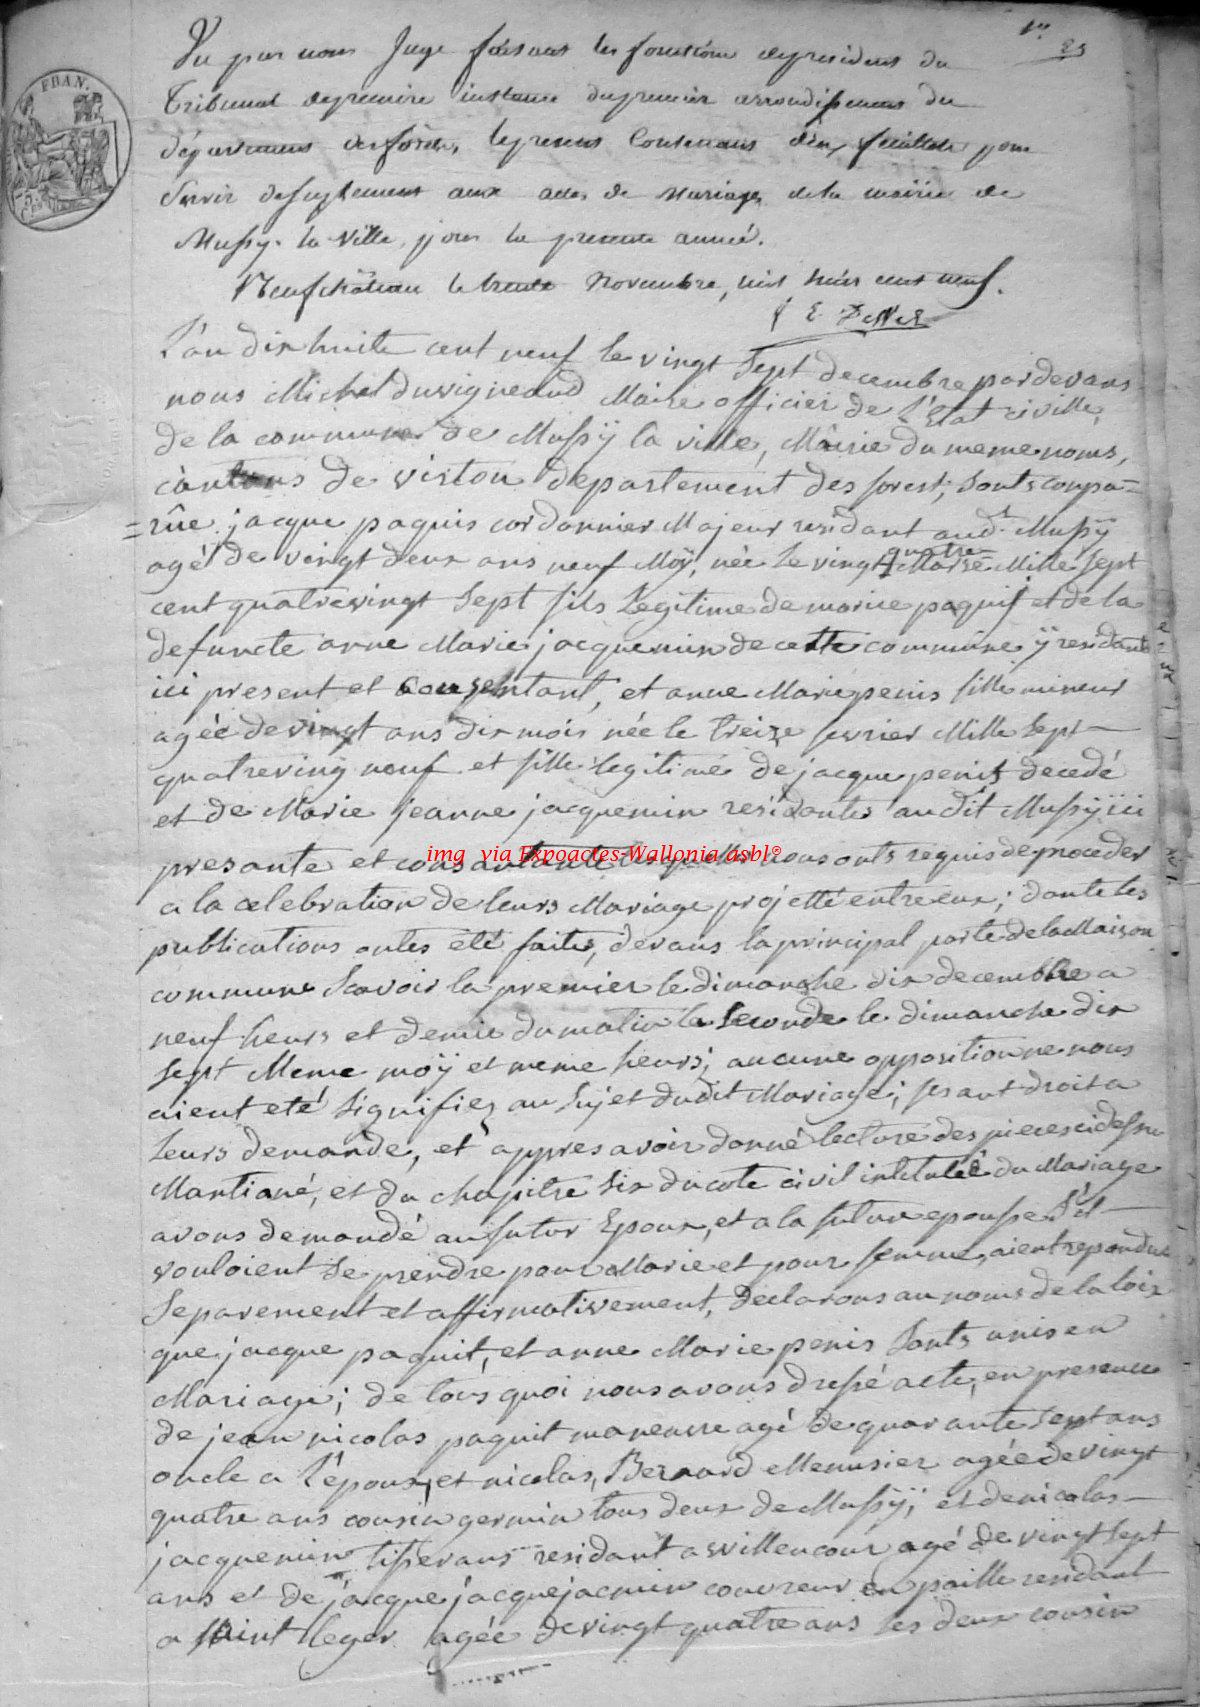 1er
25
FRAN.
Vu par nous Juge faisant les fonctions de president du
Tribunal de premiere instance du premier arrondissement du
département des forets, le present Contenant deux feuillets pour
Servir de suplement aux actes de Mariages de la mairie de
Mussy-la-Ville, pour la presente année.
Neufchâteau le trente Novembre, mil huit cent neuf.
L'an dix huite cent neuf le vingt Sept decembre pardevans
nous Michel Duvigneaud Maire officier de l'Etat civille,
de la commune de Mussÿ la ville, Mairie du meme noms,
cantons de virton departement des forest; Sonts compa=
=rûe jacque paquis cordonnier Majeur residant aud.t Mussÿ
agé de vingt deux ans neuf Moÿ, née le vingt quatre Marse Mille Sept
cent quatrevingt Sept fils Legitime de marice paquis et de la
defuncte anne Marie jacquemin de cette commune ÿ residants
ici present et consentant, et anne Marie penis fille mineur
agée de vingt ans dix mois née le treize fevrier Mille Sept
quatreving neuf et fille legitime de jacque penis decedé
et de Marie jeanne jacquemin residante audit Mussÿ ici
presante et consantente lesquelles nous onts requis de proceder
img via Expoactes-Wallonia asbl©
a la celebration de leurs Mariage projetté entre eux; donte les
publications ontes été faites, devans la principal porte de la Maison
commune Scavoir la premier le dimanche dix decembre a
neuf heurs et demie du matin la Seconde le dimanche dix
Sept Meme moÿ et meme heurs; aucune opposition ne nous
aient eté Signifiez au Sujet dudit Mariage; fesant droit a
leurs demande, et appres avoir donné lecture des pieces cidessu
Mantioné, et du chapitre Six du cote civil intitulée du Mariage
avons demandé au futur Epoux, et a la future epousse S'il
vouloient Se prendre pour Marie et pour femme, aient repondue
Separement et affirmativement, declarons au noms de la loix
que jacque paquit, et anne Marie penis Sonts unis en
Mariage; de tous quoi nous avons dressé acte, en presence
de jean nicolas paquit maneuvre agé de quarante Sept ans
oncle a l'époux, et nicolas, Bernard Menusier agée de vingt
quatre ans cousin germin tous deux de Mussÿ; et de nicolas
jacquemin tisserans residant a willencour agé de vingt Sept
ans et de jacque jacquejacmin couvreur en paille residant
a Saint leger agée de vingt quatre ans les deux cousin